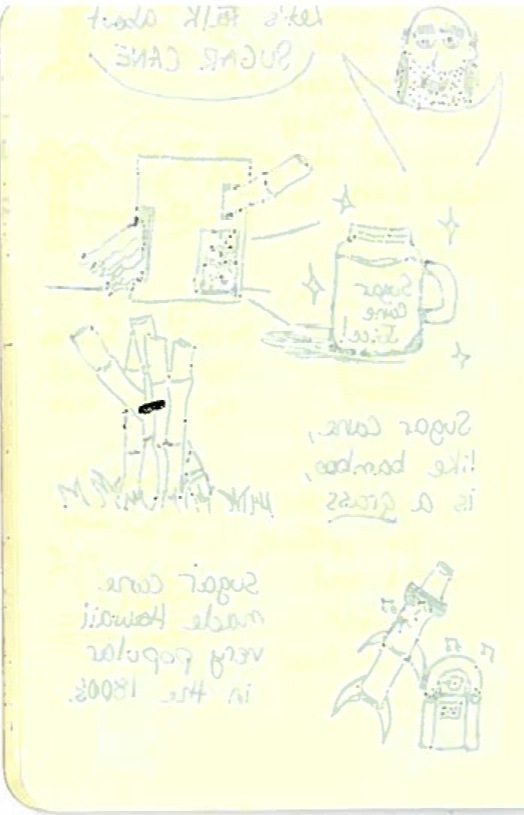 Let's Talk about
SUGAR CANE
Sugar
Cane
Juice!
Sugar Cane,
like bamboo,
is a grass
Sugar cane
made Hawaii
very popular
in the 1800's.